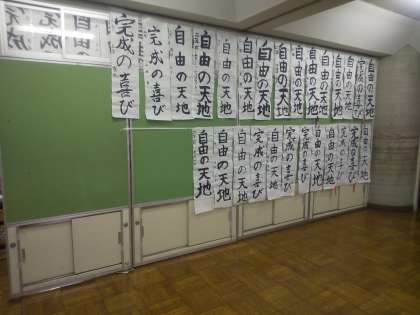 自由
完成
完成の喜び
完成の喜び
自由の天地
自由の天地
自由の天地
自由の天地
自由の天地
自由の天地
自由の天地
自由の天地
自由の天地
自由の天地
完成の喜び
自由の天地
自由の天地
自由の天地
自由の天地
完成の喜び
自由の天地
完成の喜び
完成の喜び
自由の天地
自由の天地
完成の喜び
完成の喜び
自由の天地